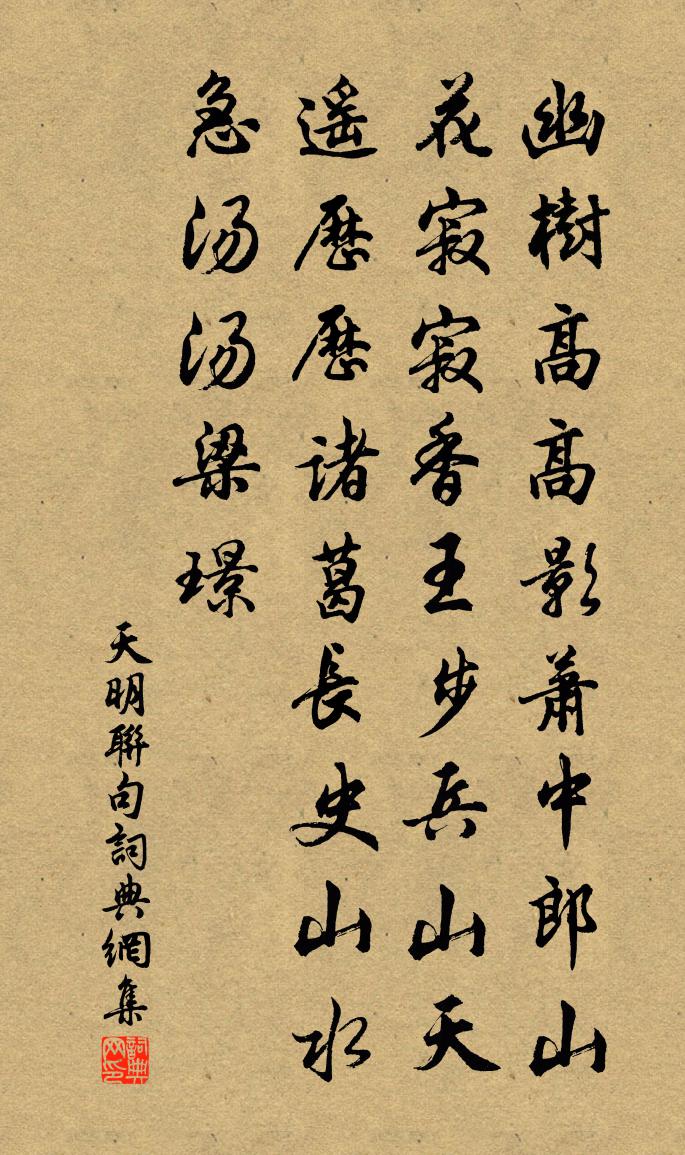 幽樹高高影蕭中郎山
花寂寂香王步兵山天
遥歷歷諸葛長史山水
急汤汤梁璟
天明聯句詞典網集
詞典网印